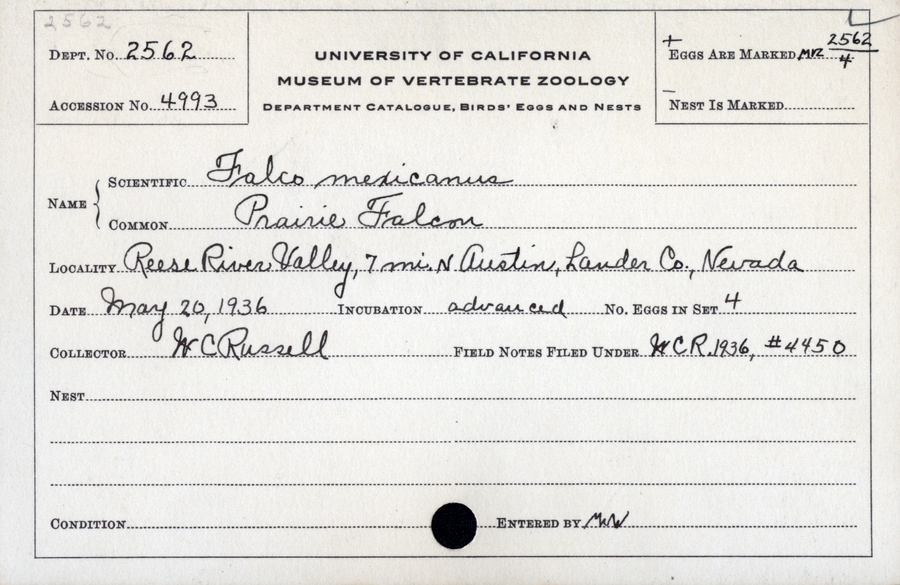 2562
Dept. No. 2562
Accession No. 4993
UNIVERSITY OF CALIFORNIA
MUSEUM OF VERTEBRATE ZOOLOGY
Department Catalogue, Birds' Eggs and Nests
+
Eggs Are Marked MVZ 2562/4
–
Nest Is Marked
Name
Scientific Falco mexicanus
Common Prairie Falcon
Locality Reese River Valley, 7 mi. N Austin, Lander Co., Nevada
Date May 20, 1936 Incubation advanced No. Eggs in Set 4
Collector WCRussell Field Notes Filed Under WCR. 1936, #4450
Nest
Condition Entered by